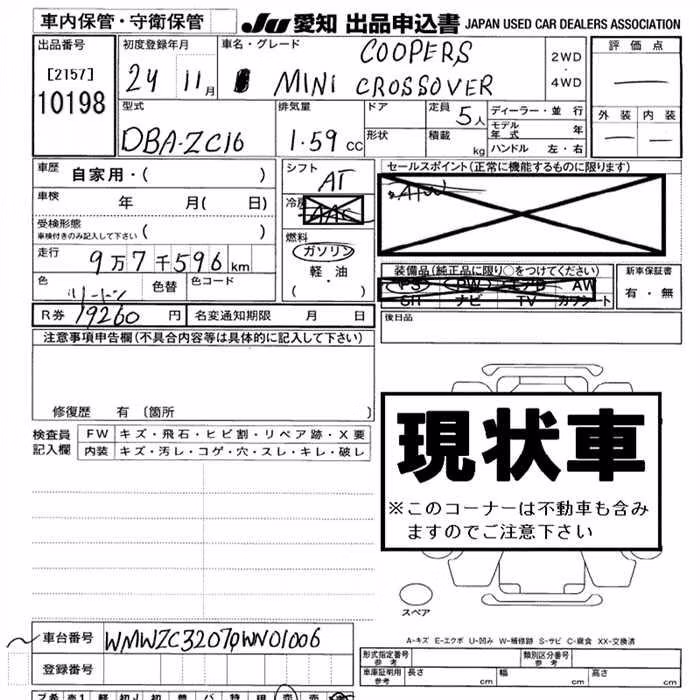 車内保管・守衛保管
JU 愛知 出品申込書 JAPAN USED CAR DEALERS ASSOCIATION
出品番号
[2157]
10198
初度登録年月
24 11月
車名・グレード
COOPERS
MINI CROSSOVER
2WD
・
4WD
評価点
外装 内装
型式
DBA-ZC16
排気量
1.59 cc
ドア
形状
定員 5人
積載 kg
ディーラー・並行
モデル年式 年
ハンドル 左・右
車歴
自家用・( )
車検 年 月( 日)
受検形態
車検付きのみ記入して下さい ( )
走行
9万7千596km
色 色替 色コード
R券 19260円 名変通知期限 月 日
シフト
AT
冷房
AAC
燃料
ガソリン
軽・油
( )
セールスポイント(正常に機能するものに限ります)
装備品(純正品に限り○をつけてください)
PS PW エアB AW
SR ナビ TV カワシート
新車保証書
有・無
後日品
注意事項申告欄(不具合内容等は具体的に記入して下さい)
修復歴 有 〔箇所 〕
検査員
記入欄
FW キズ・飛石・ヒビ割・リペア跡・X要
内装 キズ・汚レ・コゲ・穴・スレ・キレ・破レ
現状車
※このコーナーは不動車も含み
ますのでご注意下さい
スペア
A-キズ E-エクボ U-凹み W-補修跡 S-サビ C-腐食 XX-交換済
車台番号 WMWZC32070WN01006
登録番号
形式指定番号
参考
類別区分番号
参考
車庫証明用
参考
長さ cm 幅 cm 高さ cm